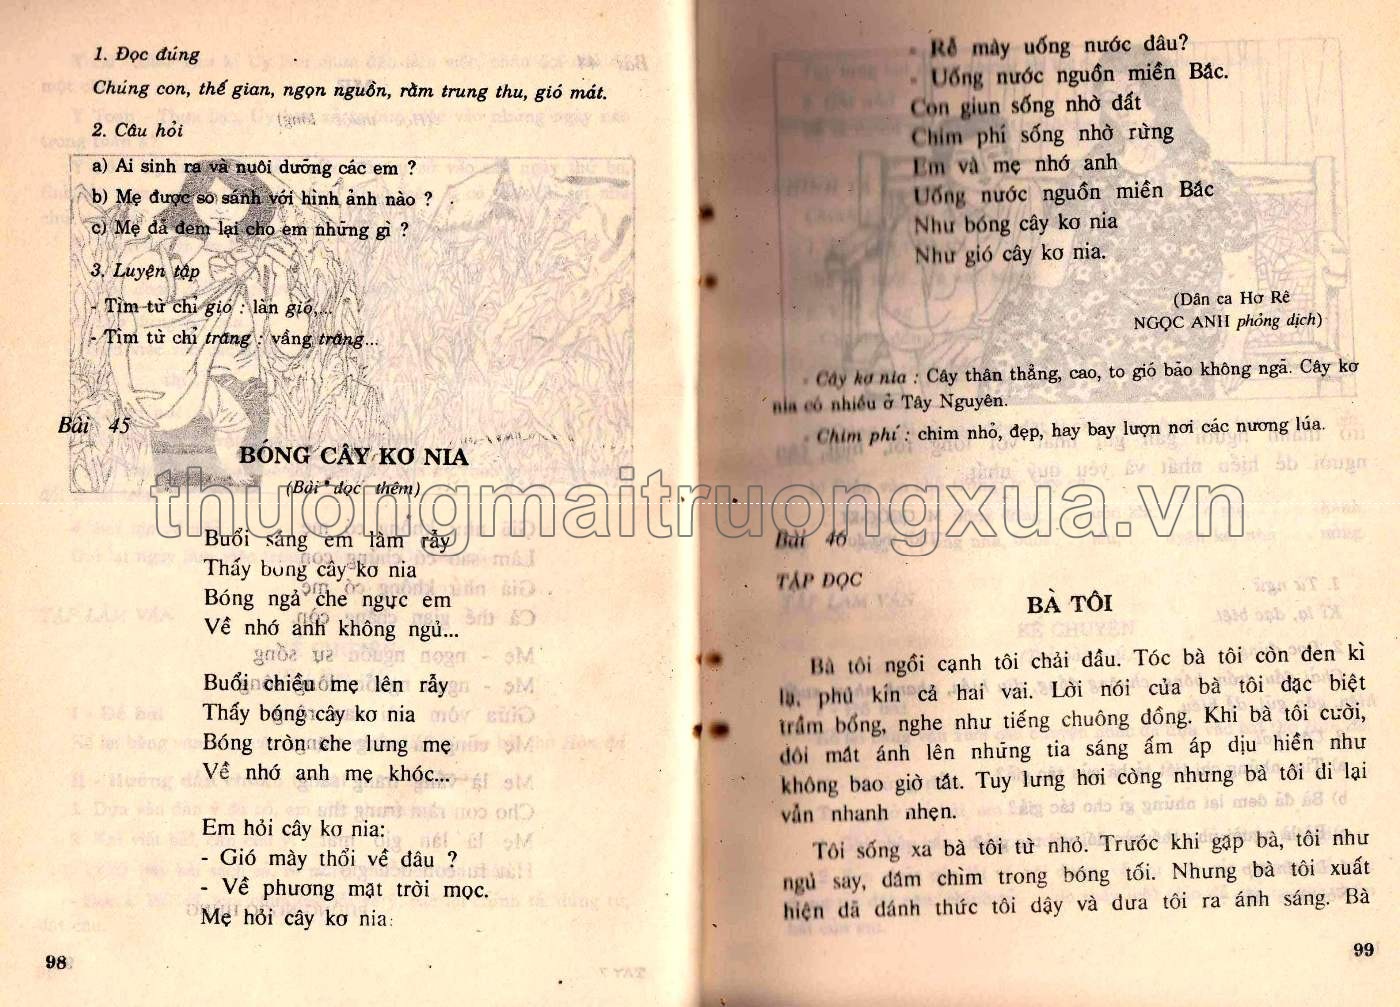 1. Đọc đúng
Chúng con, thế gian, ngọn nguồn, rằm trung thu, gió mát.
2. Câu hỏi
a) Ai sinh ra và nuôi dưỡng các em ?
b) Mẹ được so sánh với hình ảnh nào ?
c) Mẹ đã đem lại cho em những gì ?
3. Luyện tập
- Tìm từ chỉ gió : làn gió,...
- Tìm từ chỉ trăng : vầng trăng...
Bài 45
BÓNG CÂY KƠ NIA
(Bài đọc thêm)
Buổi sáng em làm rẫy
Thấy bóng cây kơ nia
Bóng ngả che ngực em
Về nhớ anh không ngủ...
Buổi chiều mẹ lên rẫy
Thấy bóng cây kơ nia
Bóng tròn che lưng mẹ
Về nhớ anh mẹ khóc...
Em hỏi cây kơ nia:
- Gió mày thổi về đâu ?
- Về phương mặt trời mọc.
Mẹ hỏi cây kơ nia:
98
- Rễ mày uống nước đâu?
- Uống nước nguồn miền Bắc.
Con giun sống nhờ đất
Chim phí sống nhờ rừng
Em và mẹ nhớ anh
Uống nước nguồn miền Bắc
Như bóng cây kơ nia
Như gió cây kơ nia.
(Dân ca Hơ Rê
NGỌC ANH phỏng dịch)
- Cây kơ nia : Cây thân thẳng, cao, to gió bão không ngã. Cây kơ
nia có nhiều ở Tây Nguyên.
- Chim phí : chim nhỏ, đẹp, hay bay lượn nơi các nương lúa.
thuongmaitruongxua.vn
Bài 46
TẬP ĐỌC
BÀ TÔI
Bà tôi ngồi cạnh tôi chải đầu. Tóc bà tôi còn đen kì
lạ, phủ kín cả hai vai. Lời nói của bà tôi đặc biệt
trầm bổng, nghe như tiếng chuông đồng. Khi bà tôi cười,
đôi mắt ánh lên những tia sáng ấm áp dịu hiền như
không bao giờ tắt. Tuy lưng hơi còng nhưng bà tôi đi lại
vẫn nhanh nhẹn.
Tôi sống xa bà tôi từ nhỏ. Trước khi gặp bà, tôi như
ngủ say, đắm chìm trong bóng tối. Nhưng bà tôi xuất
hiện đã đánh thức tôi dậy và đưa tôi ra ánh sáng. Bà
99